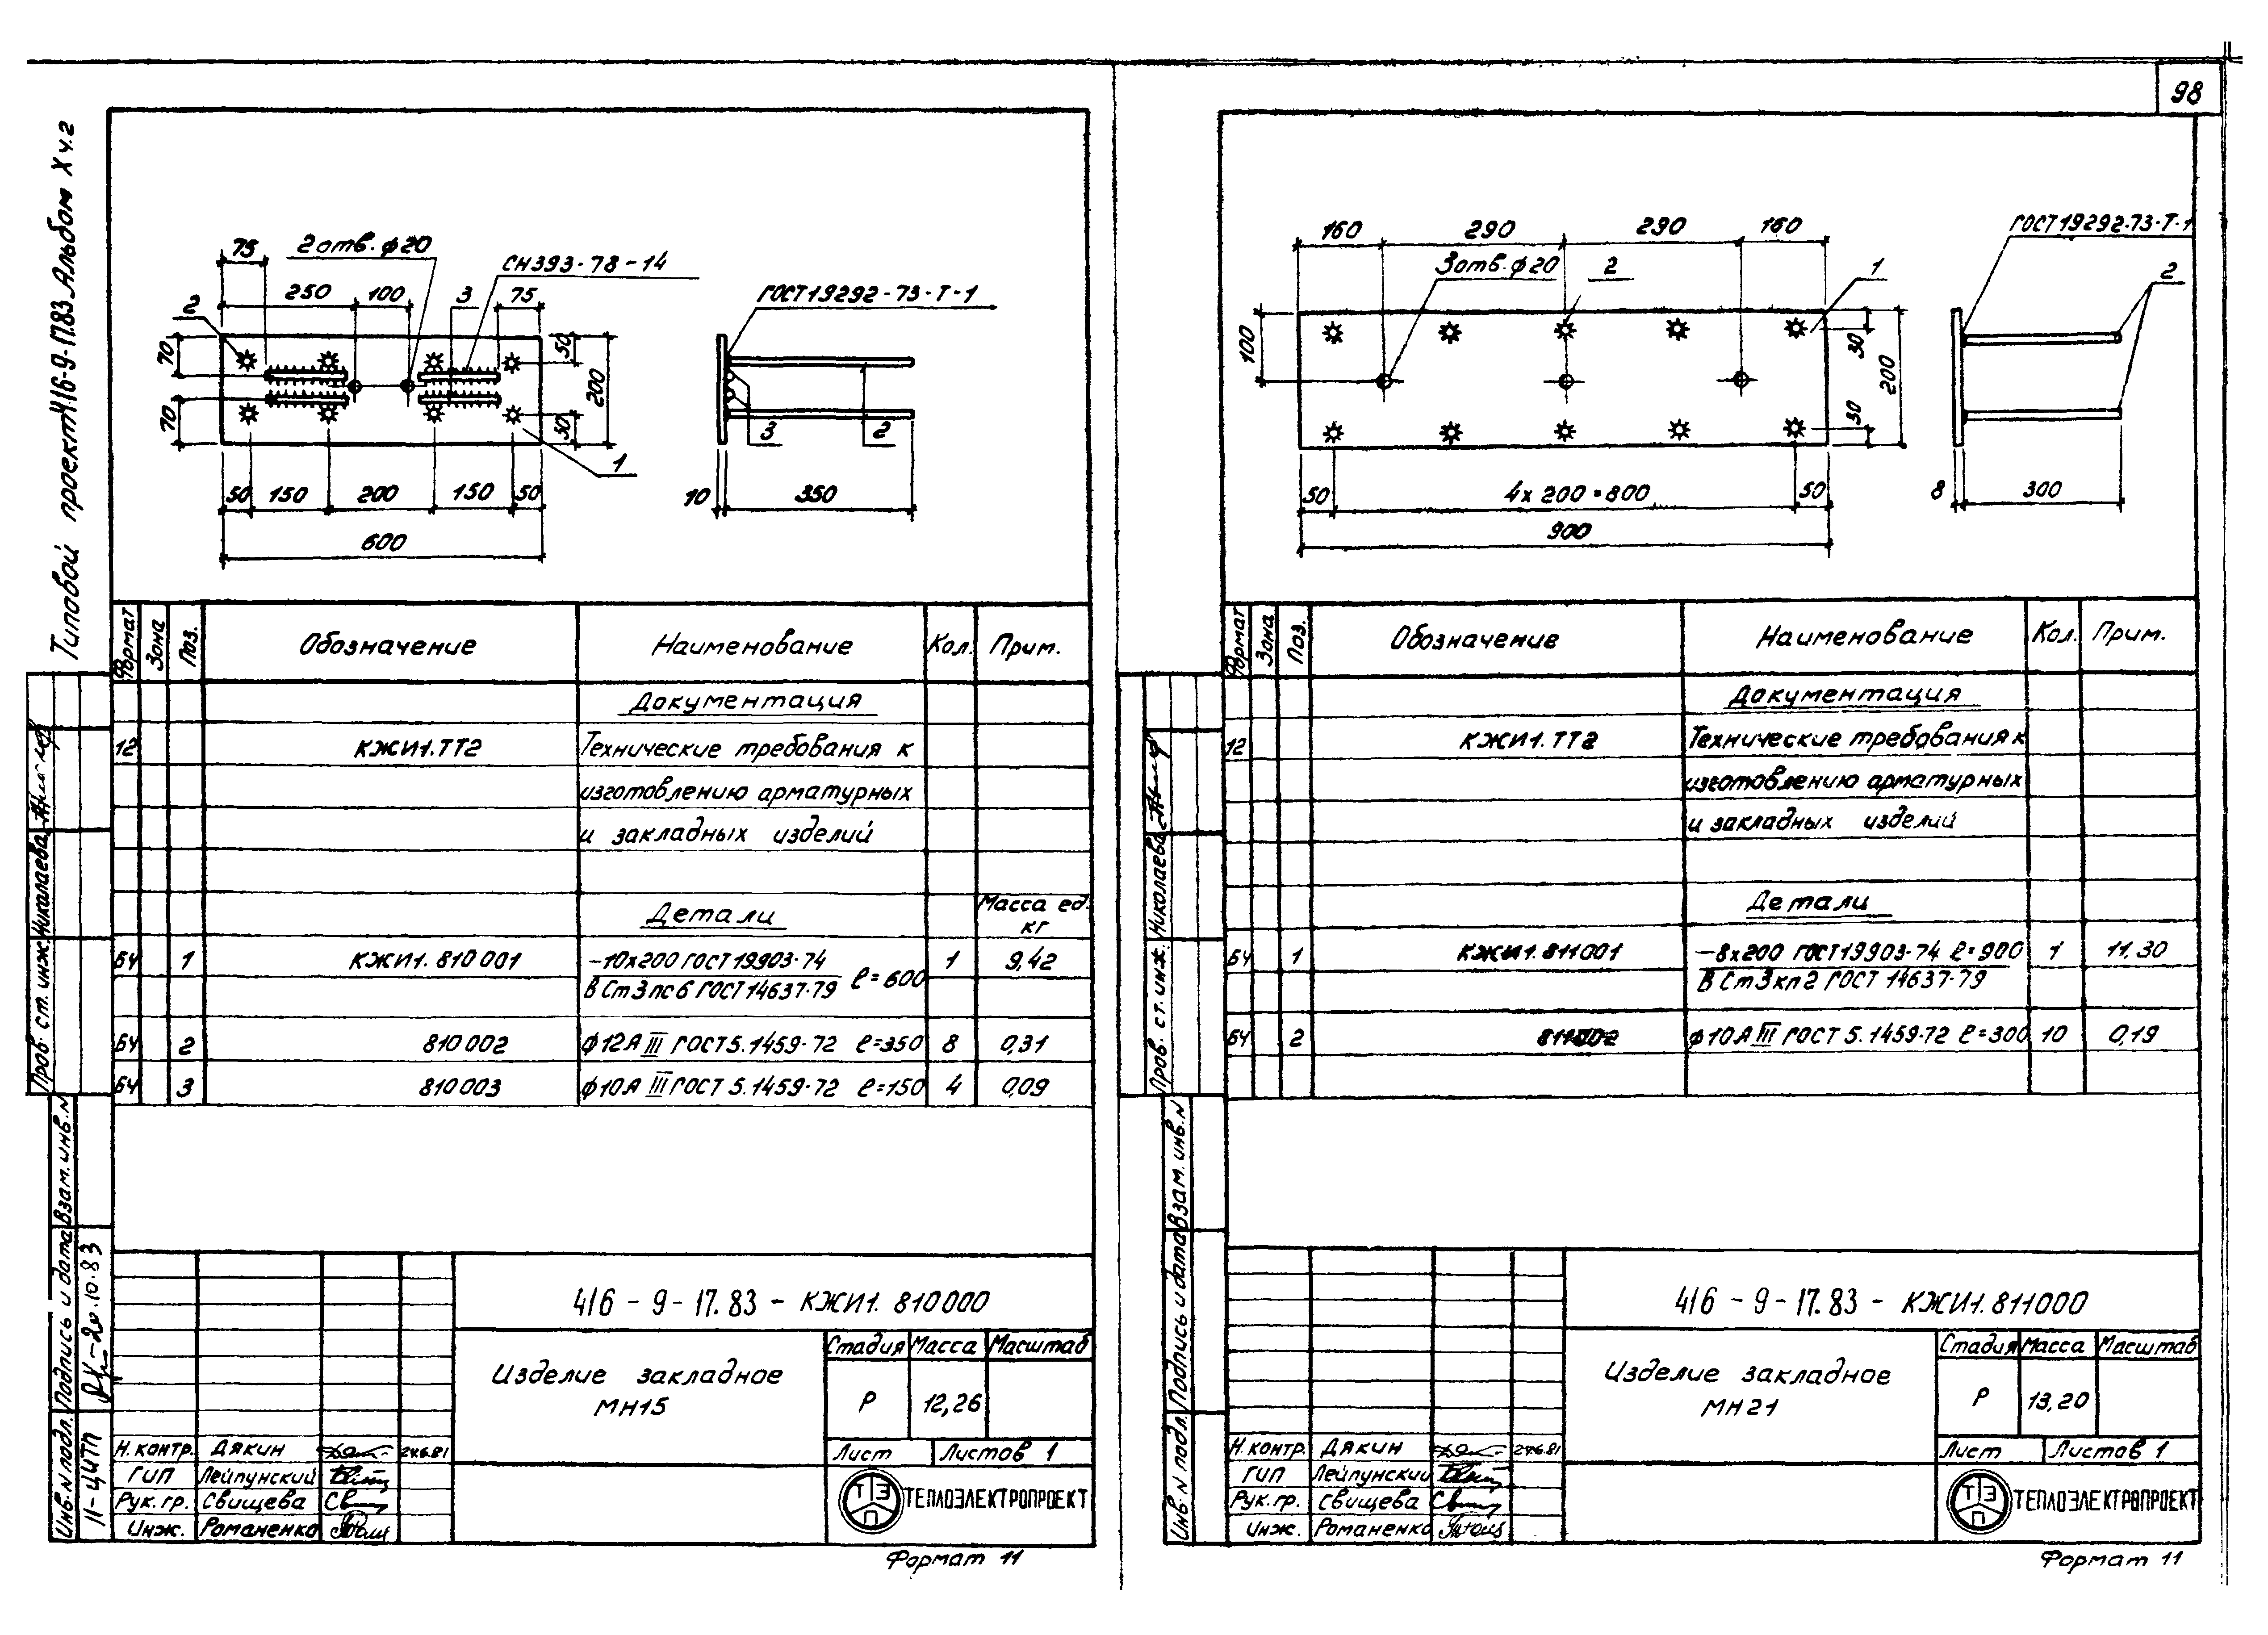 98
Типовой проект 416-9-17.83 Альбом X ч.2
75
2 отв. ф20
СН393-78-14
250
100
3
75
2
70
70
50
200
50
1
50
150
200
150
50
600
ГОСТ19292-73-Т-1
3
2
10
350
Формат
Зона
Поз.
Обозначение
Наименование
Кол.
Прим.
Документация
12
КЖИ1.ТТ2
Технические требования к
изготовлению арматурных
и закладных изделий
Детали
Масса ед.
кг
БЧ 1 КЖИ1.810001 -10х200 ГОСТ19903-74 1 9,42
ВСт3пс6 ГОСТ14637-79 ℓ=600
БЧ 2 810002 ф12АIII ГОСТ5.1459-72 ℓ=350 8 0,31
БЧ 3 810003 ф10А III ГОСТ 5.1459-72 ℓ=150 4 0,09
Пров. ст. инж. Николаева
Взам. инв. N
Подпись и дата
20.10.83
Инв. N подл.
11-ЦИТП
416-9-17.83-КЖИ1.810000
Изделие закладное
МН15
Стадия Масса Масштаб
Р 12,26
Лист Листов 1
Н.контр. Дякин 24.6.81
ГИП Лейпунский
Рук.гр. Свищева
Инж. Романенко
Т Э П
ТЕПЛОЭЛЕКТРОПРОЕКТ
Формат 11
160
290
290
160
3 отв. ф20
2
1
100
30
200
30
50
4х200=800
50
900
ГОСТ19292-73-Т-1
2
8
300
Формат
Зона
Поз.
Обозначение
Наименование
Кол.
Прим.
Документация
12
КЖИ1.ТТ2
Технические требования к
изготовлению арматурных
и закладных изделий
Детали
БЧ 1 КЖИ1.811001 -8х200 ГОСТ19903-74 ℓ=900 1 11,30
ВСт3кп2 ГОСТ 14637-79
БЧ 2 811002 ф10АIII ГОСТ 5.1459-72 ℓ=300 10 0,19
Пров. ст. инж. Николаева
Взам. инв. N
Подпись и дата
Инв. N подл.
416-9-17.83-КЖИ1.811000
Изделие закладное
МН21
Стадия Масса Масштаб
Р 13,20
Лист Листов 1
Н.контр. Дякин 24.6.81
ГИП Лейпунский
Рук.гр. Свищева
Инж. Романенко
Т Э П
ТЕПЛОЭЛЕКТРОПРОЕКТ
Формат 11